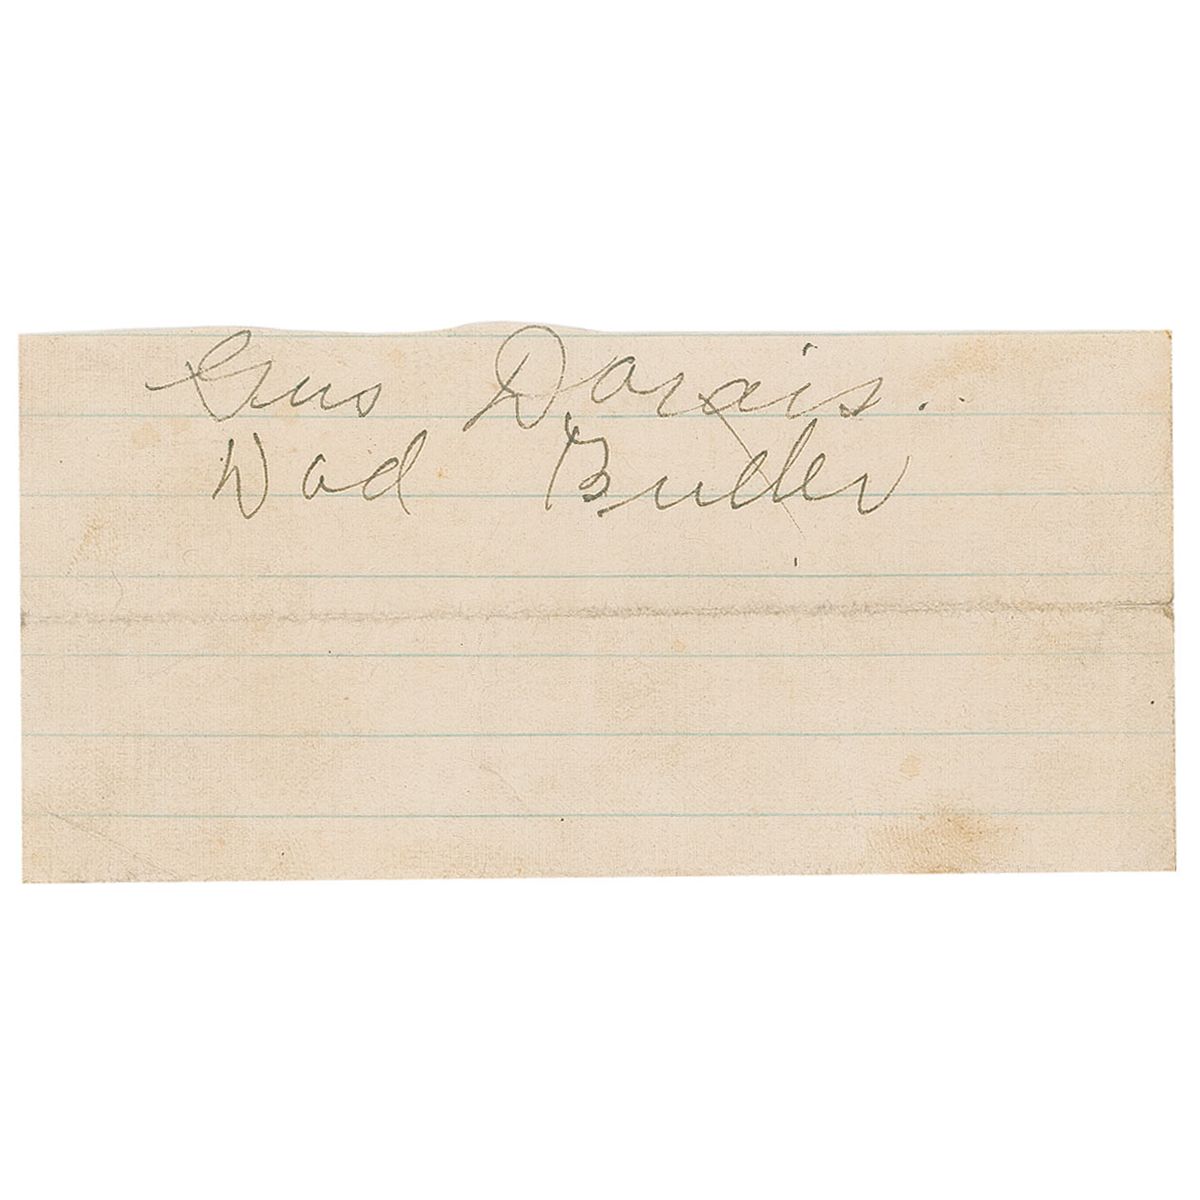 Gus Dorais.
Dad Butler